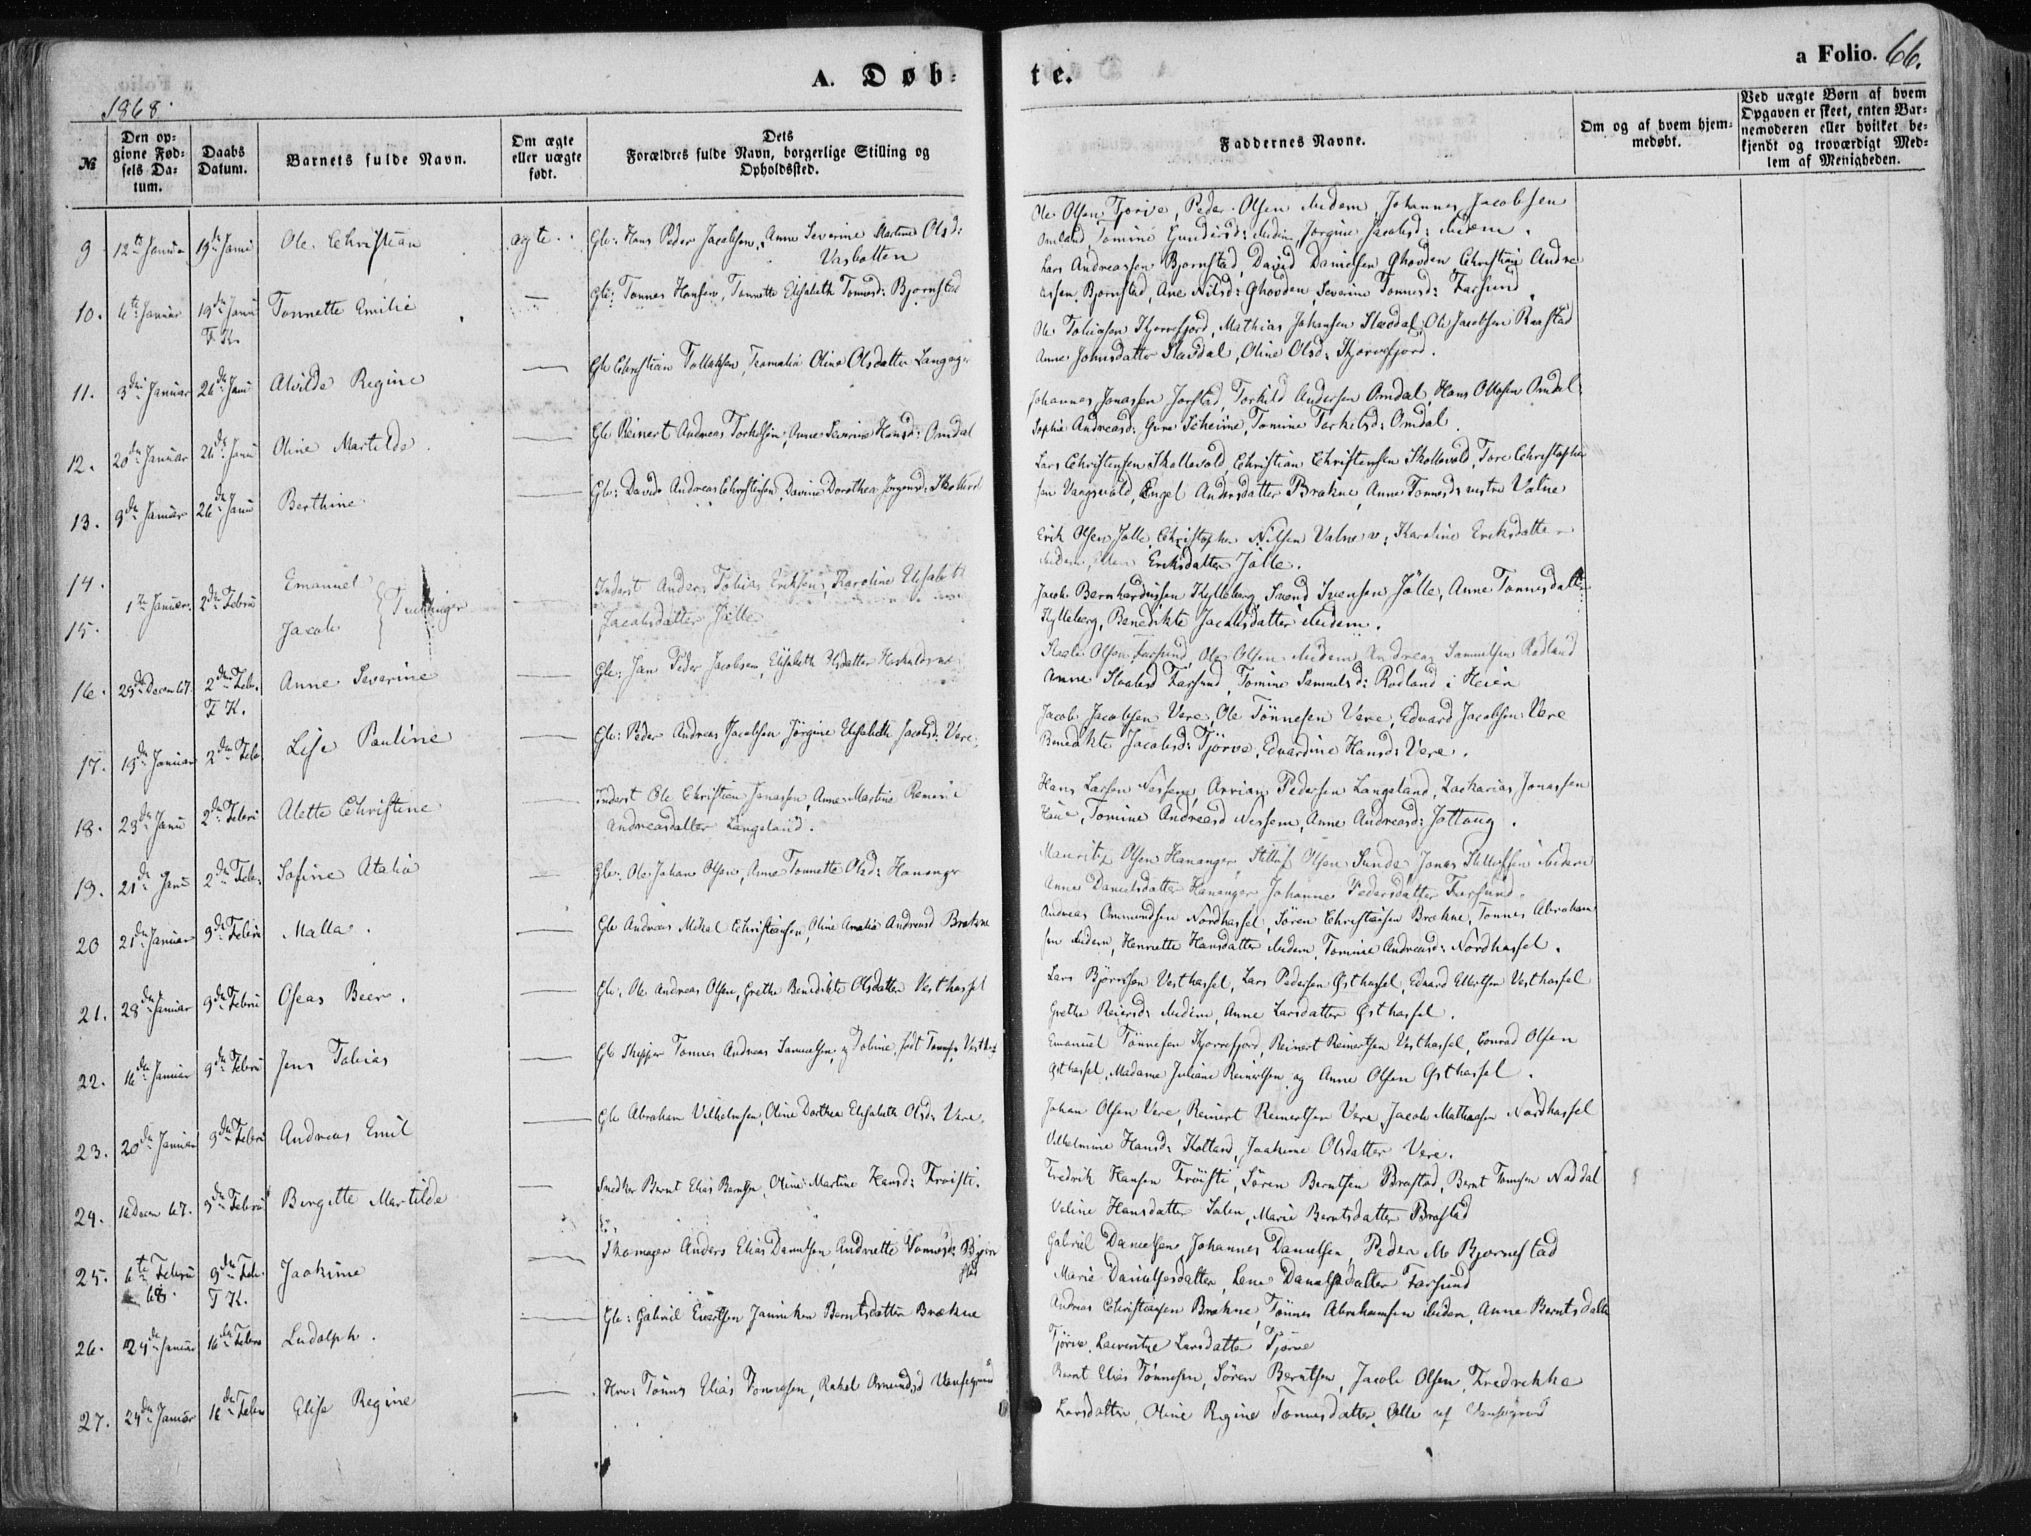 A. Døb-
te.
a Folio. 66.
1868.
№
Den opgivne Fødsels Datum.
Daabs Datum.
Barnets fulde Navn.
Om ægte eller uægte født.
Dets Forældres fulde Navn, borgerlige Stilling og Opholdssted.
Faddernes Navne.
Om og af hvem hjemmedøbt.
Ved uægte Børn af hvem Opgaven er skeet, enten Barnemoderen eller hvilket bekjendt og troværdigt Medlem af Menigheden.
9 12te Januar 19de Janu Ole Christian ægte Gbr: Hans Peder Jacobsen, Anne Severine Martine Olsd: Vasbotten
Ole Olsen Tjørve, Peder Olsen ibidem, Johannes Jacobsen
Omland, Tomine Gundersd: ibidem, Jørgine Jacobsd: ibidem.
10. 6te Januar 19de Janu F. K. Tonnette Emilie — Gbr: Tønnes Hansen, Tonnette Elisabeth Tønnesd: Bjørnstad
Lars Andreassen Bjørnstad, David Danielsen Ghovden Christian Andre
assen Bjørnstad, Ane Nilsd: Ghovden, Severine Tønnesd: Farsund
11. 3die Januar 26de Janu Alvilde Regine — Gbr Christian Tollaksen, Teomalia Oline Olsdatter Langager
Ole Tobiasen Skjorvefjord, Mathias Johansen Slevdal, Ole Jacobsen Raastad
Anne Johnsdatter Slevdal, Oline Olsd: Skjorvefjord.
12. 20de Januar 26de Janu Oline Martilde — Gbr Reinert Andreas Torkelsen, Anne Severine Hansd: Omdal
Johannes Jonassen Jørstad, Torkild Andersen Omdal, Hans Ollosen Omdal
Sophie Andreasd: Gure Scheime, Tomine Terkilsd: Omdal.
13. 9de Januar 26de Janu Berthine — Gbr: David Andreas Christensen, Davine Dorothea Jørgensd: Skollevol
Lars Christensen Skollevold, Christian Christensen Skollevold, Tore Christophe
sen Vangsvold, Engel Andersdatter Brækne, Anne Tønnesd: østre Valne
14. Emanuel
15. Jacob } Tvillinger
1te Januar 2den Febru — Inderst Anders Tobias Eriksen, Karoline Elisabeth
Jacobsdatter Jølle
Erik Olsen Jølle, Christopher Nilsen Valne v: Karoline Eriksdatter
ibidem, Ellen Eriksdatter Jølle.
Jacob Bernhardussen Kylleberg, Svend Svensen Jølle, Anne Tønnesdatter
Kylleberg, Benedikte Jacobsdatter ibidem.
16. 29de Decem 67. 2den Febr. F. K. Anne Severine — Gbr: Jan Peder Jacobsen, Elisabeth Olsdatter
Staale Olsen Farsund, Ole Olsen ibidem, Andreas Samuelsen Rødland
Anne Staalesd Farsund, Tomine Samuelsd: Rødland i Heien
17. 15de Januar 2den Febr Lise Pauline — Gbr: Peder Andreas Jacobsen Jørgine Elisabeth Jacobsd: Vere.
Jacob Jacobsen Vere, Ole Tønnesen Vere, Edvard Jacobsen Vere
Benedikte Jacobsd: Tjørve, Edvardine Hansd: Vere.
18. 23de Janu 2den Febru Alette Christine — Inderst Ole Christian Jonassen, Anne Martine
Andreasdatter Langeland.
Hans Larsen Nessem, Arrian Pedersen Langeland, Zacharias Jonassen
Haue, Tomine Andreasd Nessem, Anne Andreasd: Jottoug.
19. 21de Janu 2den Febr. Sofine Atalia — Gbr: Ole Johan Olsen, Anne Tonnette Olsd: Hananger
Mauritz Olsen Hananger, Stilluf Olsen Sunde, Jonas Stillufsen ibidem
Anne Danielsdatter Hananger Johanne Pedersdatter Farsund.
20 21de Januar 9de Febru Malla. — Gbr Andreas Mikal Christiansen, Oline Amalia Andreasd Brækne
Andreas Ommundsen Nordhassel, Søren Christensen Brækne, Tønnes Abraham
sen ibidem, Henriette Hansdatter ibidem, Tomine Andreasd: Nordhassel.
21. 28de Januar 9de Febru Oseas Beer. — Gbr. Ole Andreas Olsen, Grethe Benedikte Olsdatter Vesthassel
Lars Bjørnsen Vesthassel, Lars Pedersen Østhassel, Edvard Ellertsen Vesthassel
Grethe Reiersd: ibidem, Anne Larsdatter Østhassel.
22. 16de Januar 9de Febru Jens Tobias — Gbr Skipper Tønnes Andreas Samuelsen og Tobine, født Tønnesen Vesth
Emanuel Tønnesen Skjorrefjord, Reinert Reinertsen Vesthassel, Conrad Olsen
Østhassel, Madame Juliane Reinertsen og Anne Olsen Østhassel.
23. 20de Januar 9de Febru Andreas Emil — Gbr Abraham Vilhelmsen, Oline Dorthea Elisabeth Olsd: Vere.
Johan Olsen Vere, Reinert Reinertsen Vere, Jacob Mathiasen Nordhassel
Vilhelmine Hansd: Kolland, Joakime Olsdatter Vere.
24. 16 Decem 67. 9de Febru Birgitte Martilde — Snedker Bernt Elias Berntsen, Oline Martine Hansd: Frøisti.
Fredrik Hansen Frøisti, Søren Berntsen Brastad, Bernt Tønnesen Naddal
Veline Hansdatter Salen, Marie Berntsdatter Brastad
25. 6te Febru 68. 9de Feb. F. K. Joakime — Skomager Anders Elias Danielsen, Andriette Tønnesd: Bjørn
stad
Gabriel Danielsen, Johannes Danielsen, Peder M. Bjørnestad
Marie Danielsesdatter, Lene Danielsdatter Farsund
26. 24de Januar 16de Febru Ludolph. — Gbr: Gabriel Evertsen Janniken Berntsdatter Brækne
Andreas Christensen Brækne, Tønnes Abrahamsen ibidem, Anne Berntsdatte
Tjørve, Laurentze Larsdatter Tjørve
27. 24de Januar 16de Febru Elise Regine — Huus Tønnes Elias Tønnesen, Rakel Osmundsd Vansegrund
Bernt Elias Tønnesen, Søren Berntsen, Jacob Olsen, Fredrikke
Larsdatter, Oline Regine Tønnesdatter, Alle af Vansegrund